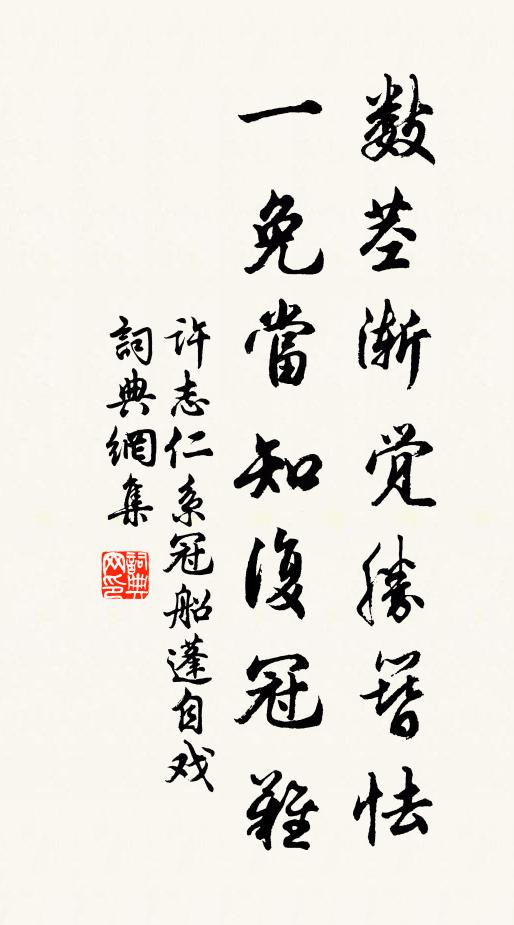 数茎渐觉勝簪怯
一免當知復冠難
许志仁系冠船蓬自戏
詞典網集
詞典网印